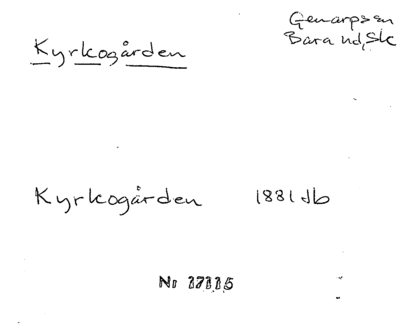 Kyrkogården
Genarps sn
Bara hd, Sk
Kyrkogården 1881 db
Nr